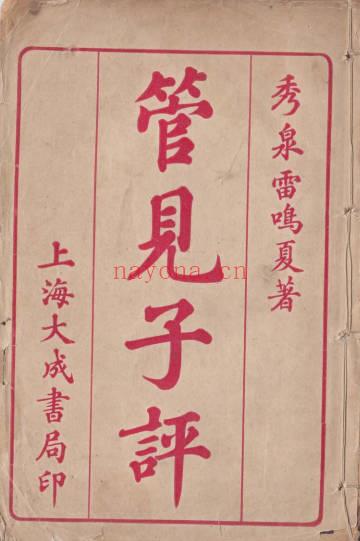 秀泉雷鳴夏著
管見子評
上海大成書局印
nayona.cn